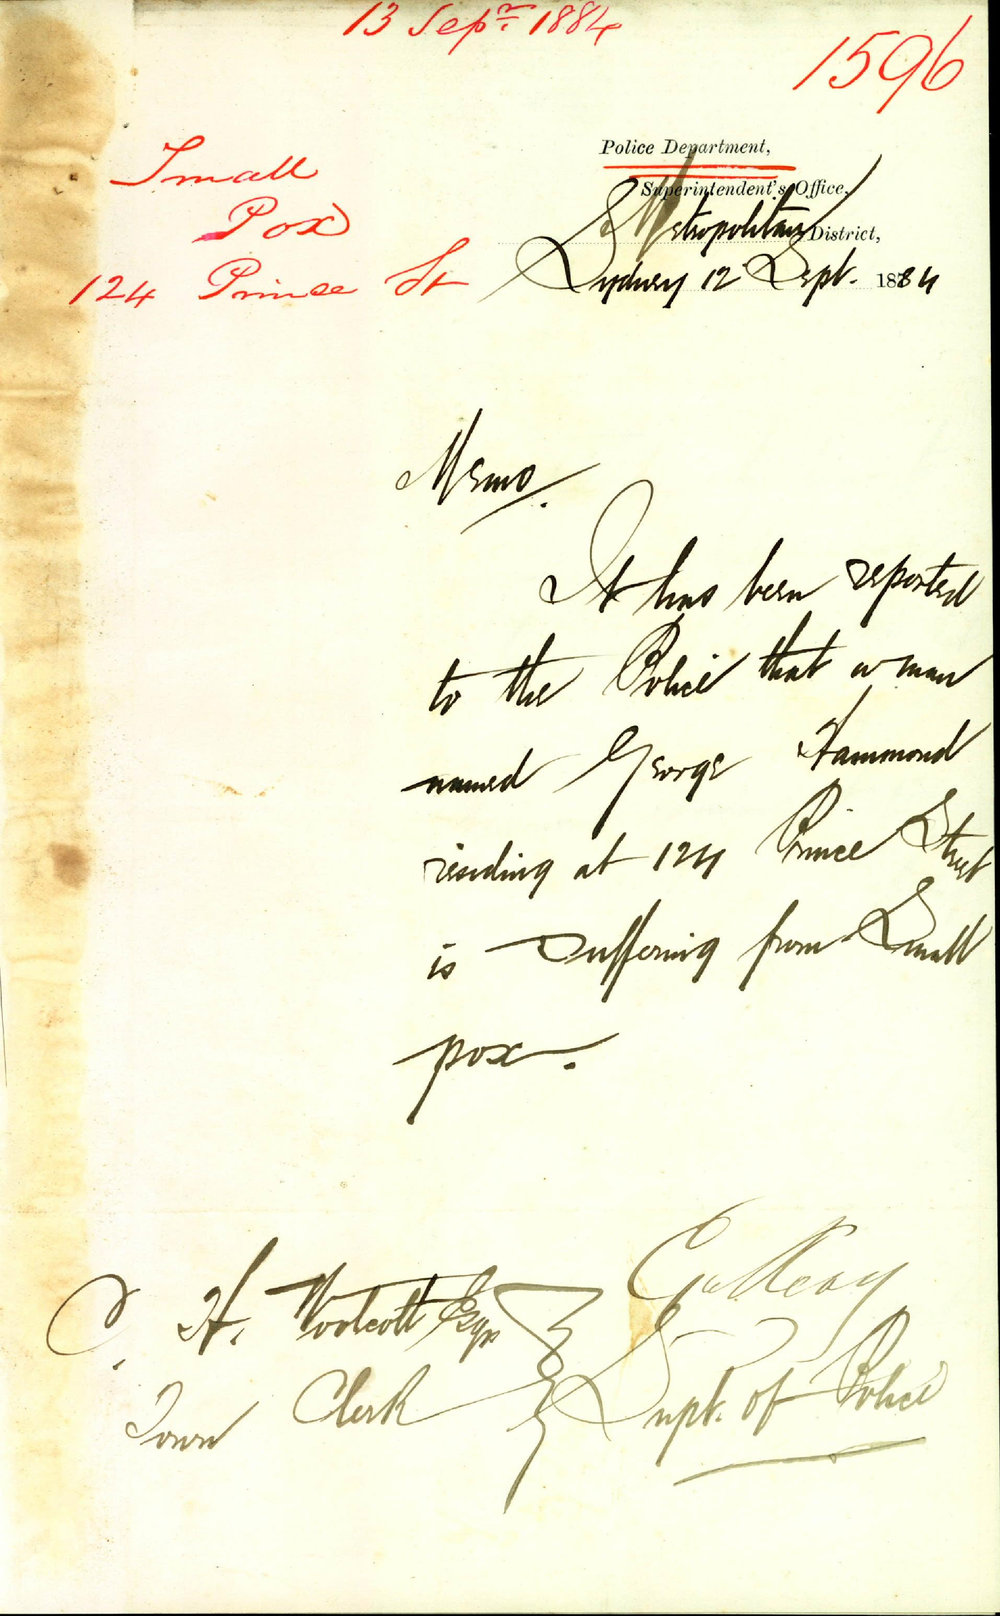 13 Sepr. 1884
1596
Small
Pox
124 Prince St
Police Department,
Superintendent's Office,
Metropolitan District,
Sydney 12 Sept. 1884
Memo.
It has been reported
to the Police that a man
named George Hammond
residing at 124 Prince Street
is suffering from Small
pox.
Supt. of Police
C. H. Woolcott Esqr
Town Clerk